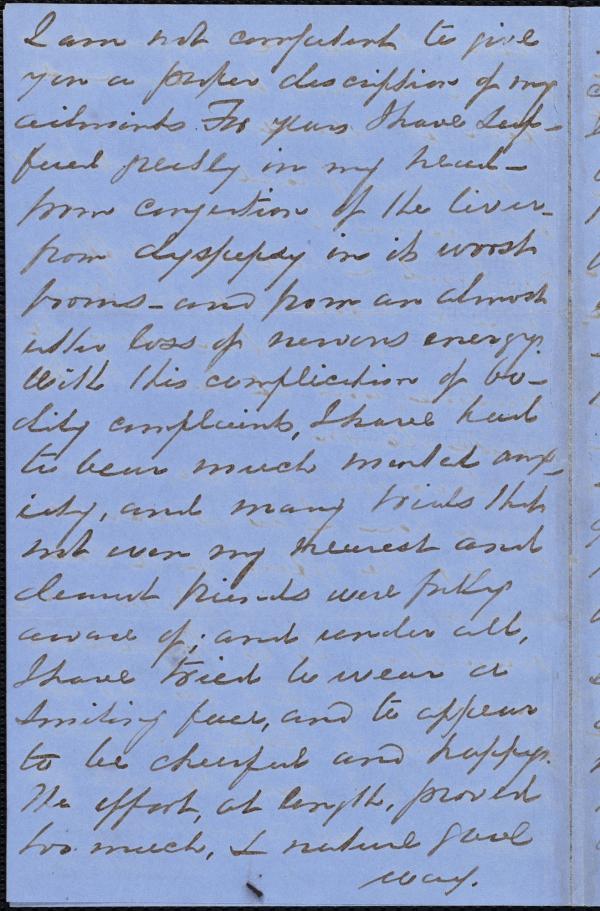 I am not competent to give
you a proper description of my
ailments. For years I have suf-
fered greatly in my head-
from congestion of the liver-
from dyspepsy in its worst
forms - and from an almost
utter loss of nervous energy.
With this complication of bo-
dily complaints, I have had
to bear much mental anx-
iety, and many trials that
not even my nearest and
dearest friends were fully
aware of; and under all,
I have tried to wear a
smiling face, and to appear
to be cheerful and happy.
The effort, at length, proved
too much, & nature gave
way.